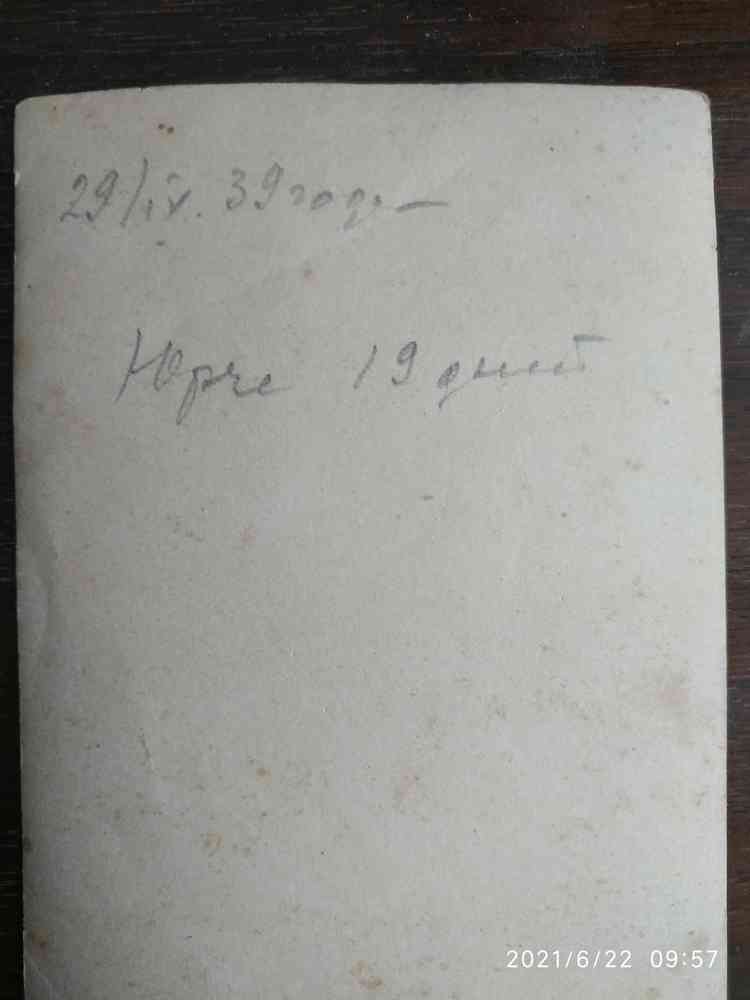 29/IX. 39 года
Юрче 19 дней
2021/6/22 09:57